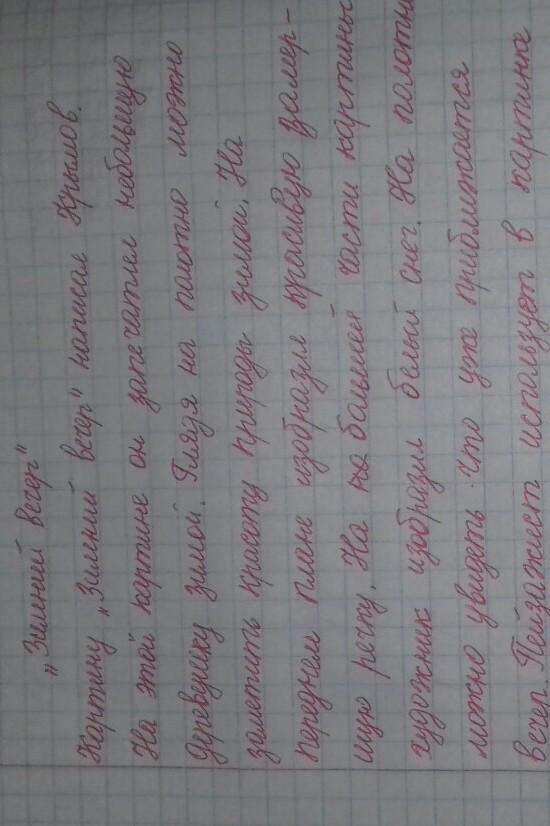 „Зимний вечер"
Картину „Зимний вечер" написал Крымов.
На этой картине он запечатлел небольшую
деревушку зимой. Глядя на полотно можно
заметить красоту природы зимой. На
переднем плане изобразил красивую замер-
шую речку. На но большей части картины
художник изобразил белый снег. На полотне
можно увидеть что уже приближается
вечер. Пейзажист использует в картине